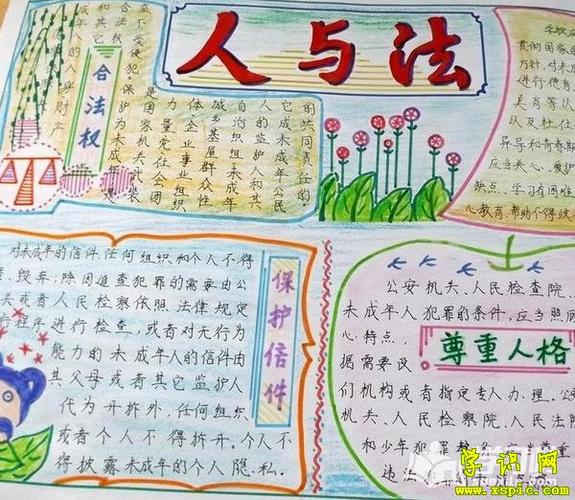 人与法
合法权
的共同责任的
它成未成年公民
人的监护人和其
自治组织未成年
城乡基层群众性
体、企业事业组织
力量党社会团
是国家机关武装
益不受侵犯。保护为未成年
合法权
和其它
成年人的人身财产
学校应
贯彻国家
方针,对未成
进行德育
美育等
以及社
导和青春期
应当关心、爱护
缺点、学习有困难
心教育、帮助不得歧
保护信件
对未成年的信件,任何组织和个人不得
毁弃;除因追查犯罪的需要由公
关或者人民检察依照法律规定
程序进行检查,或者对无行为
能力的未成年人的信件由
其父母或者其它监护人
代为开拆外,任何组织
或者个人不得拆开。个人不
得披露未成年的个人隐.私.
公安机关、人民检查院、
未成年人犯罪的条件,应当照顾
心特点,
尊重人格
据需要设
们机构或者指定专人办理。公安
机关、人民检察院、人民法院
和少年犯罪
违法
学识网
www.xspic.com